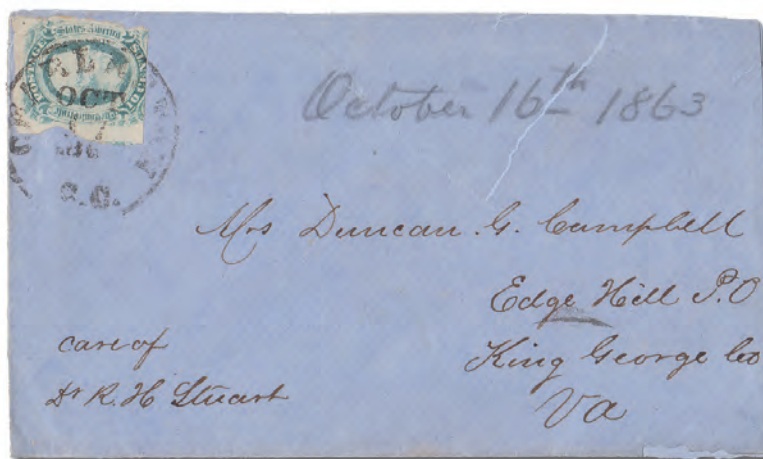 October 16th 1863
OCT
S.C.
Mrs Duncan. G. Campbell
Edge Hill P.O
King George Co
Va
care of
Dr R. H Stuart